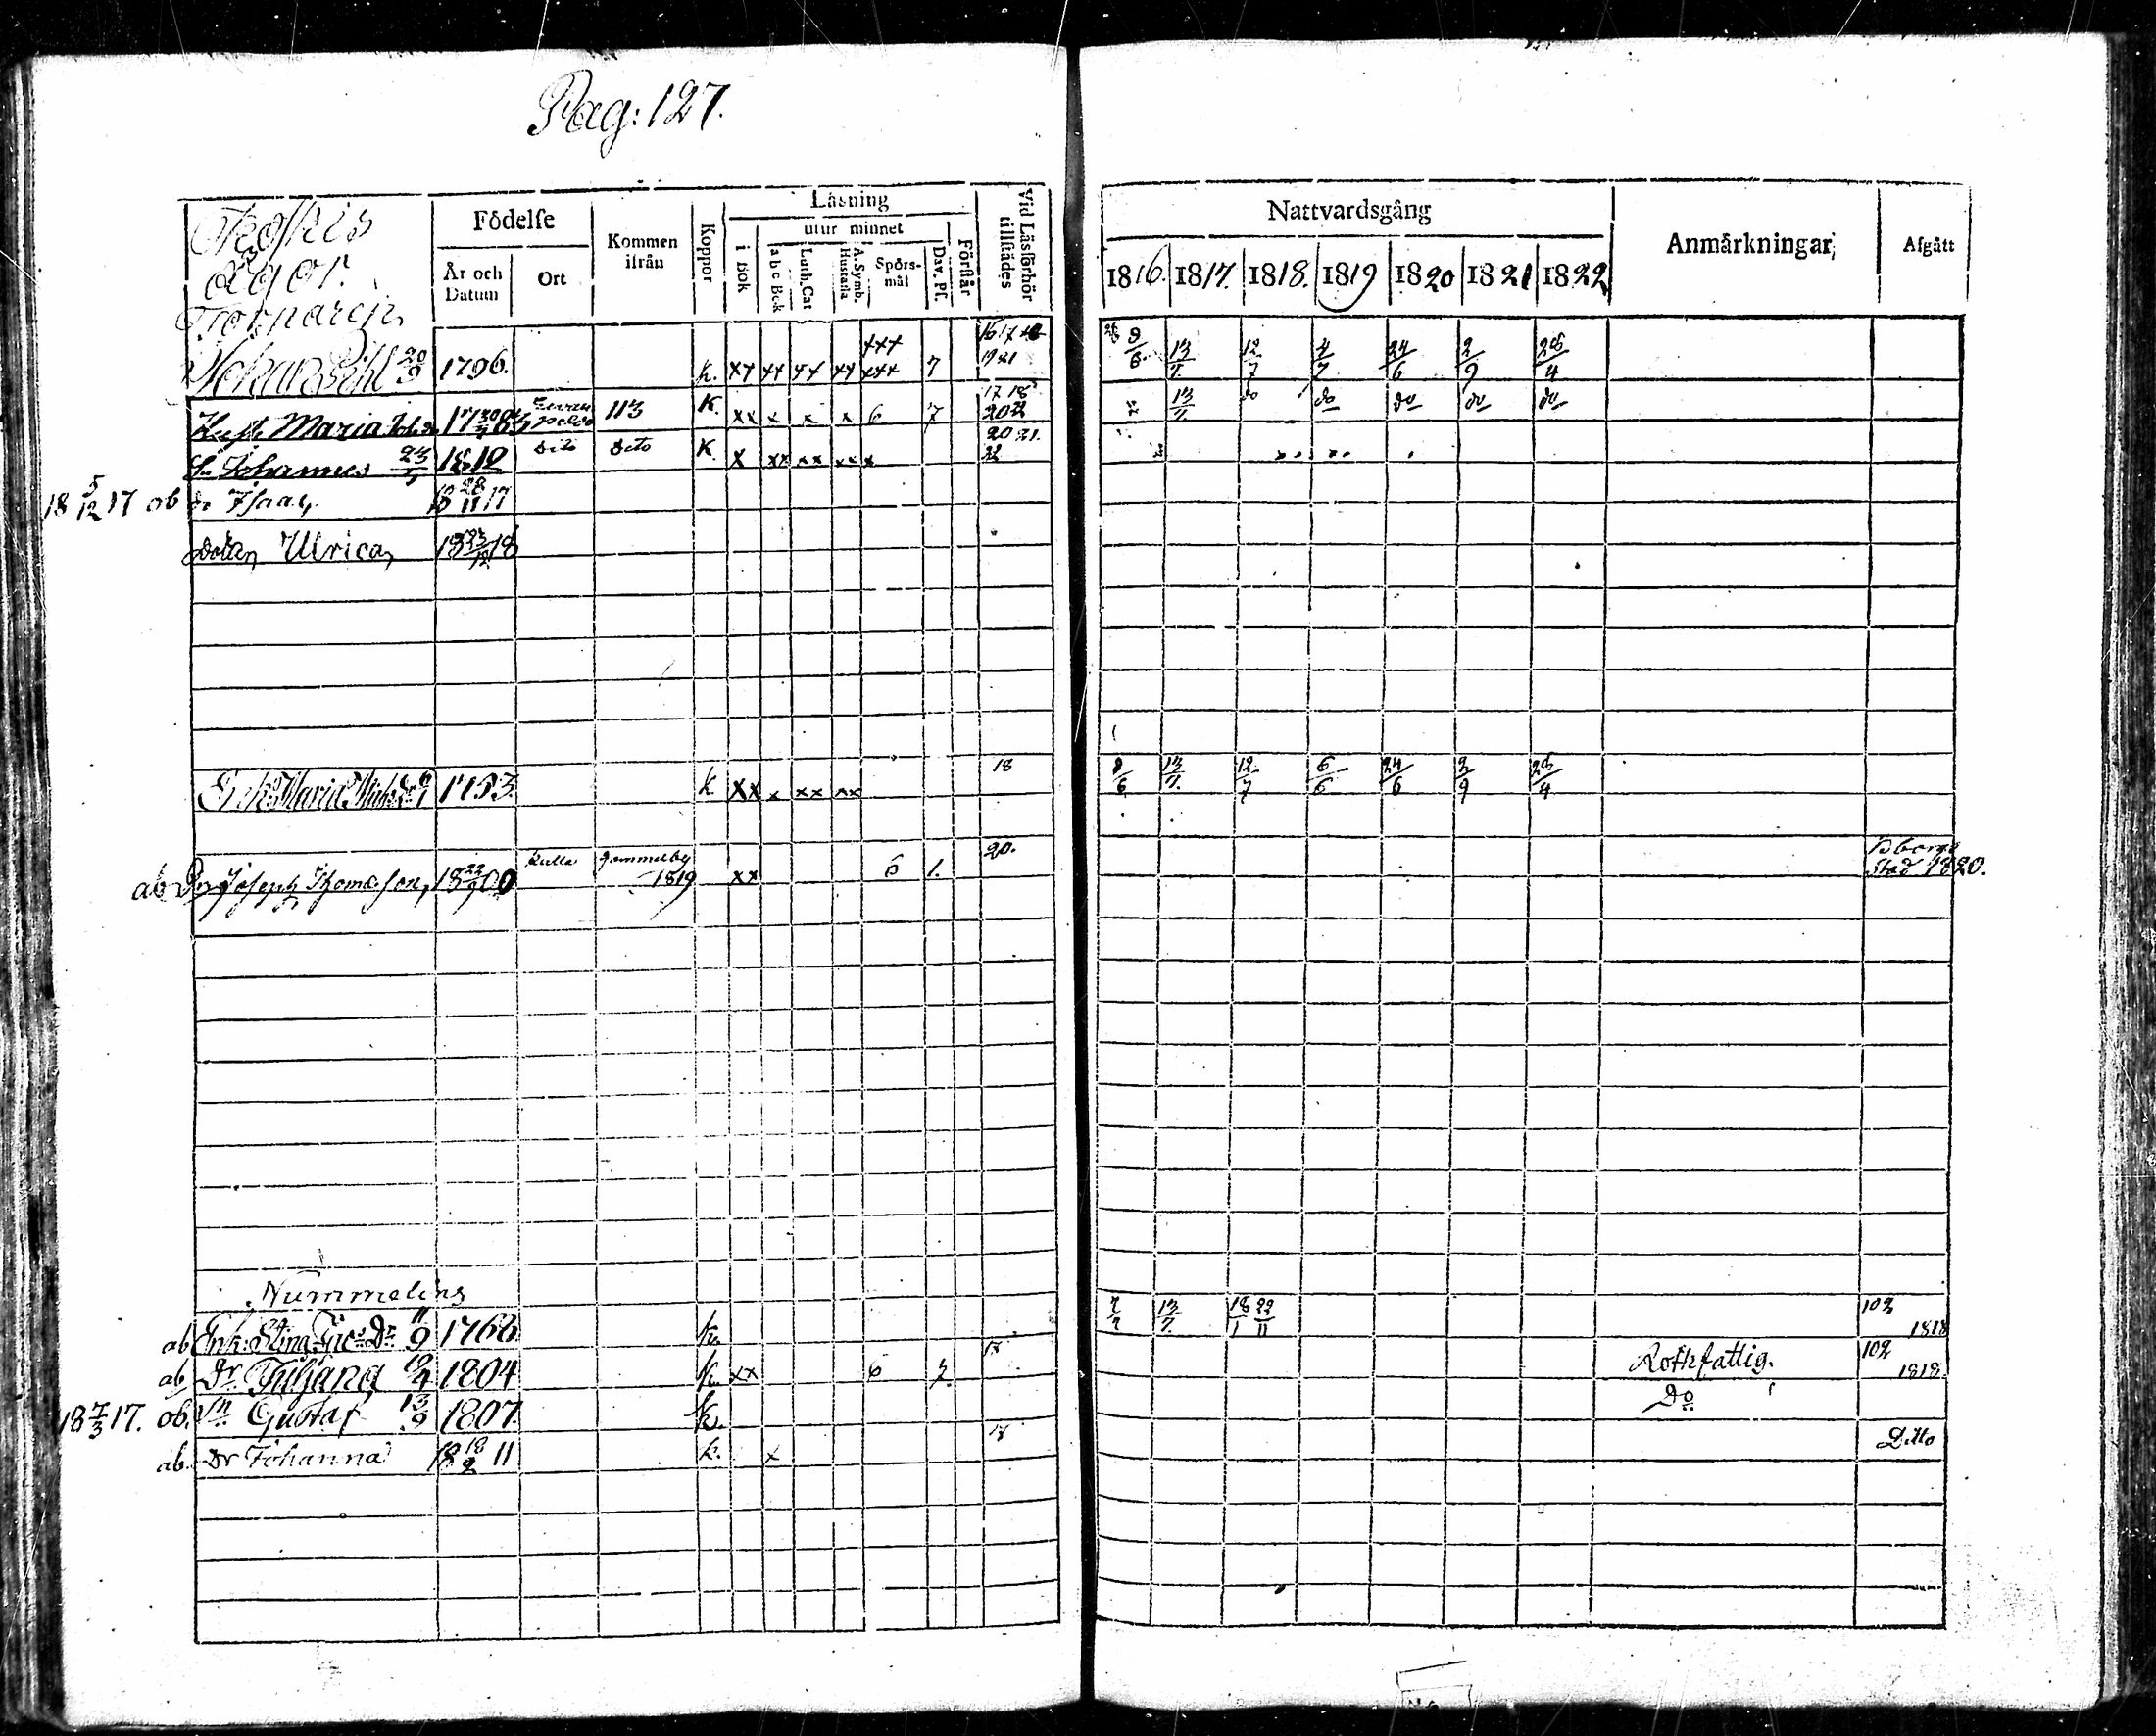 Pag: 127.
ägor.
Födelse
År och Datum
Ort
Kommen ifrån
Koppor
Läsning
utur minnet
i Bok
a b c Bok
Luth. Cat
A. Symb. Hustafla
Spörs-mål
Dav. Ps.
Förstår
Vid Läsförhör tillstädes
Nattvardsgång
1816. 1817. 1818. 1819 1820 1821 1822
Anmärkningar
Afgått
20/9 1796. k. xx xx xx xx xxx xxx 7 16 17 19 21 9/6. 13/7. 12/7 4/7 24/6 2/9 28/4
Maria 113 K. xx x x x 6 7 17 18 20 22 13/7. do do do do do
Johannes 23/5 1812 Dito Dito K. x xx xx xx x 20 21. 22
18 5/12 17 ob Isaac 18 28/11 17
Dotr Ulrica 18 23/12 18
Enk. Maria 1753. k xx x xx xx 18 9/6 13/7. 12/7 6/6 24/6 2/9 28/4
ab Dr Joseph Thomasson, 18 22/7 00 Kulla Gammelby 1819 xx 6 1. 20. Stad 1820.
Nummelins
ab Enk. Stina 11/9 1766 k. 7/7 13/7. 18/1 22/11 102 1818
ab Dr Juliana 19/4 1804 k. xx 6 2. Rothfattig. 102 1818
18 7/3 17. ob. Sn Gustaf 13/9 1807 k. Do
ab. Dr Johanna 18 18/2 11 k. x 18 Ditto